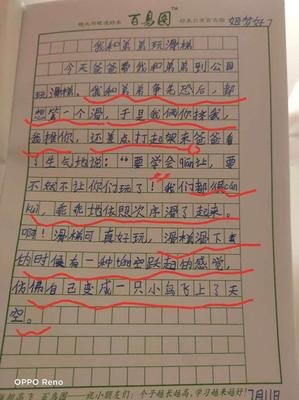 百易图
姐梦好7
我和弟弟玩滑梯
今天爸爸带我和弟弟到公园
玩滑梯,我和弟弟争先恐后,都
想第一个滑,于是我俩你挤我,
我推你,还差点打起架来爸爸看
了生气地说:“要学会谦让,要
不然不让你们玩了!”我们都很cán
kuì,乖乖地依照次序滑了起来。
啊!滑梯可真好玩,滑梯滑下去
的时候有一种腾空跃起的感觉,
仿佛自己变成一只小鸟飞上了天
空。
7月11日
OPPO Reno
祝小朋友们:个子越长越高,学习越来越好!